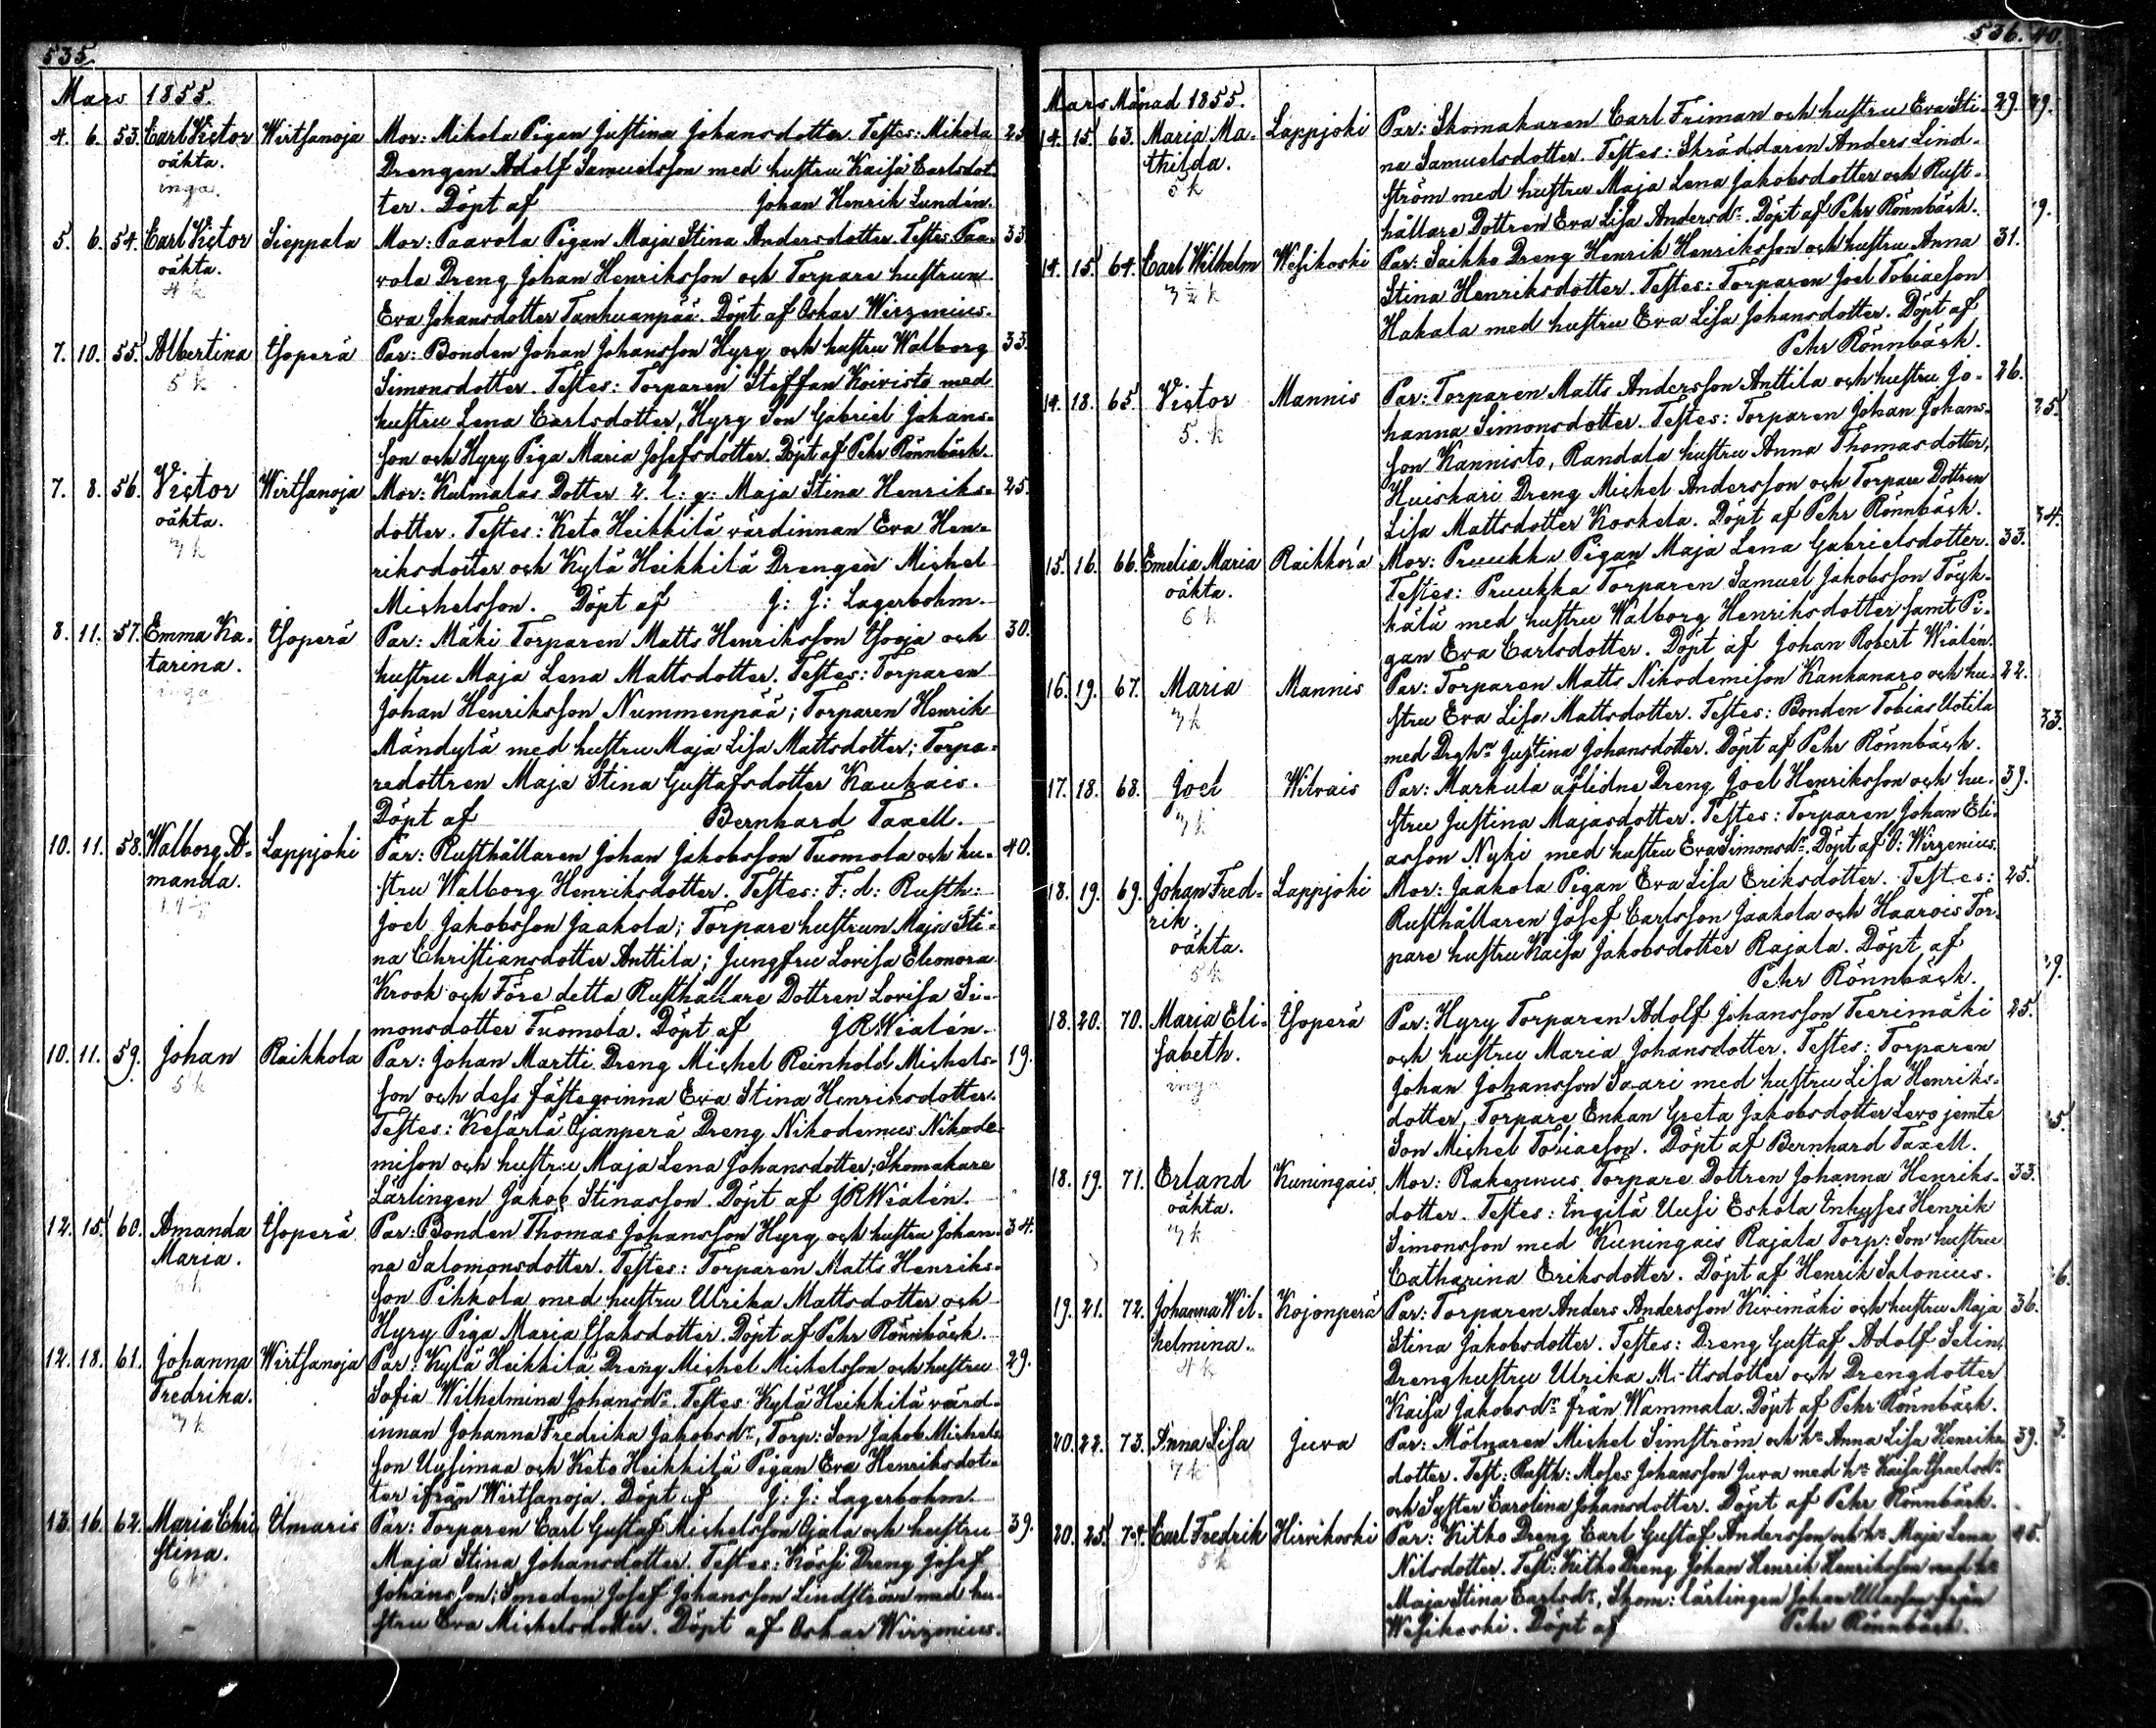 535.
Mars 1855.
4. 6. 53. Carl Victor Wirtsanoja Mor: Mikola Pigan Justina Johansdotter. Testes: Mikola 25.
oäkta. Drengen Adolf Samuelsson med hustru Kaisa Carlsdot-
inga. ter. Döpt af Johan Henrik Lundén.
5. 6. 54. Carl Victor Sieppala Mor: Paavola Pigan Maja Stina Andersdotter. Testes: Paa- 33.
oäkta. vola Dreng Johan Henriksson och Torpare hustrun
4 k Eva Johansdotter Tanhuanpää. Döpt af Oskar Wirzenius.
7. 10. 55. Albertina Ysoperä Par: Bonden Johan Johansson Hyry och hustru Walborg 33.
5 k Simonsdotter. Testes: Torparen Steffan Koivisto med
hustru Lena Carlsdotter, Hyry Son Gabriel Johans-
son och Hyry Piga Maria Josefsdotter. Döpt af Pehr Rönnbäck.
7. 8. 56. Victor Wirtsanoja Mor: Kulmalas Dotter 2. l: g: Maja Stina Henriks- 25.
oäkta. dotter. Testes: Keto Heikkilä värdinnan Eva Hen-
3 k riksdotter och Kylä Heikkilä Drengen Michel
Michelsson. Döpt af J: J: Lagerbohm.
8. 11. 57. Emma Ka- Ysoperä Par: Mäki Torparen Matts Henriksson Ysoja och 30.
tarina. hustru Maja Lena Mattsdotter. Testes: Torparen
inga Johan Henriksson Nummenpää; Torparen Henrik
Mändylä med hustru Maja Lisa Mattsdotter; Torpa-
redottren Maja Stina Gustafsdotter Kaukais.
Döpt af Bernhard Taxell.
10. 11. 58. Walborg A- Lappjoki Par: Rusthållaren Johan Jakobsson Tuomola och hu- 40.
manda. stru Walborg Henriksdotter. Testes: F: d: Rusth:
Joel Jakobsson Jaakola; Torpare hustrun Maja Sti-
na Christiansdotter Anttila; Jungfru Lovisa Eleonora
Krook och Före detta Rusthållare Dottren Lovisa Si-
monsdotter Tuomola. Döpt af JRWialén.
10. 11. 59. Johan Raikkola Par: Johan Martti Dreng Michel Reinhold Michels- 19.
5 k son och dess fästeqvinna Eva Stina Henriksdotter.
Testes: Kesärlä Ojanperä Dreng Nikodemus Nikode-
misson och hustru Maja Lena Johansdotter; Skomakare
Lärlingen Jakob Stinasson. Döpt af JRWialén.
12. 15. 60. Amanda Ysoperä Par: Bonden Thomas Johansson Hyry och hustru Johan- 34.
Maria. na Salomonsdotter. Testes: Torparen Matts Henriks-
6 k son Pihkola med hustru Ulrika Mattsdotter och
Hyry Piga Maria Ysaksdotter. Döpt af Pehr Rönnbäck.
12. 18. 61. Johanna Wirtsanoja Par: Kylä Heikkilä Dreng Michel Michelsson och hustru 29.
Fredrika. Sofia Wilhelmina Johansdr. Testes Kylä Heikkilä värd-
3 k innan Johanna Fredrika Jakobsdr, Torp: Son Jakob Michels-
son Uusimaa och Keto Heikkilä Pigan Eva Henriksdot-
ter ifrån Wirtsanoja. Döpt af J: J: Lagerbohm.
13. 16. 62. Maria Chri- Ilmaris Par: Torparen Carl Gustaf Michelsson Ojala och hustru 39.
stina. Maja Stina Johansdotter. Testes: Körsi Dreng Josef
6 k Johansson; Smeden Josef Johansson Lindström med hu-
stru Eva Michelsdotter. Döpt af Oskar Wirzenius.
536. 40.
Mars Månad 1855.
14. 15. 63. Maria Ma- Lappjoki Par: Skomakaren Carl Friman och hustru Eva Sti- 29.
thilda. na Samuelsdotter. Testes: Skräddaren Anders Lind-
5 k ström med hustru Maja Lena Jakobsdotter och Rust-
hållare Dottren Eva Lisa Andersdr. Döpt af Pehr Rönnbäck.
14. 15. 64. Carl Wilhelm Wesikoski Par: Saikko Dreng Henrik Henriksson och hustru Anna 31.
3 1/2 k Stina Henriksdotter. Testes: Torparen Joel Tobiaesson
Hakala med hustru Eva Lisa Johansdotter. Döpt af
Pehr Rönnbäck.
14. 18. 65. Victor Mannis Par: Torparen Matts Andersson Anttila och hustru Jo- 26.
5. k hanna Simonsdotter. Testes: Torparen Johan Johans-
son Kannisto, Randala hustru Anna Thomasdotter,
Huiskari Dreng Michel Andersson och Torpare Dottren
Lisa Mattsdotter Koskela. Döpt af Pehr Rönnbäck.
15. 16. 66. Emelia Maria Raikkora Mor: Pruukka Pigan Maja Lena Gabrielsdotter. 33.
oäkta. Testes: Pruukka Torparen Samuel Jakobsson Töyk-
6 k kälä med hustru Walborg Henriksdotter samt Pi-
gan Eva Carlsdotter. Döpt af Johan Robert Wialén.
16. 19. 67. Maria Mannis Par: Torparen Matts Nikodemison Kankanaro och hu- 22.
3 k stru Eva Lisa Mattsdotter. Testes: Bonden Tobias Uotila
med Drghu Justina Johansdotter. Döpt af Pehr Rönnbäck.
17. 18. 68. Joel Witvais Par: Markula aflidne Dreng Joel Henriksson och hu- 39.
3 k stru Justina Majasdotter. Testes: Torparen Johan Eli-
asson Nyki med hustru Eva Simonsdr. Döpt af O: Wirzenius.
18. 19. 69. Johan Fred- Lappjoki Mor: Jaakola Pigan Eva Lisa Eriksdotter. Testes: 25.
rik. Rusthållaren Josef Carlsson Jaakola och Haarois Tor-
oäkta. pare hustru Kaisa Jakobsdotter Rajala. Döpt af
5 k Pehr Rönnbäck.
18. 20. 70. Maria Eli- Ysoperä Par: Hyry Torparen Adolf Johansson Teerimäki 25.
sabeth. och hustru Maria Johansdotter. Testes: Torparen
inga Johan Johansson Saari med hustru Lisa Henriks-
dotter, Torpare Enkan Greta Jakobsdotter Levo jemte
Son Michel Tobiaesson. Döpt af Bernhard Taxell.
18. 19. 71. Erland Kuningais. Mor: Rakennus Torpare Dottren Johanna Henriks- 33.
oäkta. dotter. Testes: Ingilä Uusi Eskola Inhyses Henrik
3 k Simonsson med Kuningais Rajala Torp: Son hustru
Catharina Eriksdotter. Döpt af Henrik Salonius.
19. 21. 72. Johanna Wil- Kojonperä Par: Torparen Anders Andersson Kivimäki och hustru Maja 36.
helmina. Stina Jakobsdotter. Testes: Dreng Gustaf Adolf Selin,
4 k Drenghustru Ulrika Mattsdotter och Drengdotter
Kaisa Jakobsdr från Wammala. Döpt af Pehr Rönnbäck.
20. 22. 73. Anna Lisa Juva Par: Mölnaren Michel Simström och hu Anna Lisa Henriks- 39.
7 k dotter. Test: Rusth: Moses Johansson Juva med hu Kaisa Ysraelsdr
och Syster Carolina Johansdotter. Döpt af Pehr Rönnbäck.
20. 25. 74. Carl Fredrik Hirvikoski Par: Kitko Dreng Carl Gustaf Andersson och hu Maja Lena 25.
5 k Nilsdotter. Test: Kitko Dreng Johan Henrik Henriksson med hu
Maja Stina Carlsdr, Skom: lärlingen Johan från
Wesikoski. Döpt af Pehr Rönnbäck.